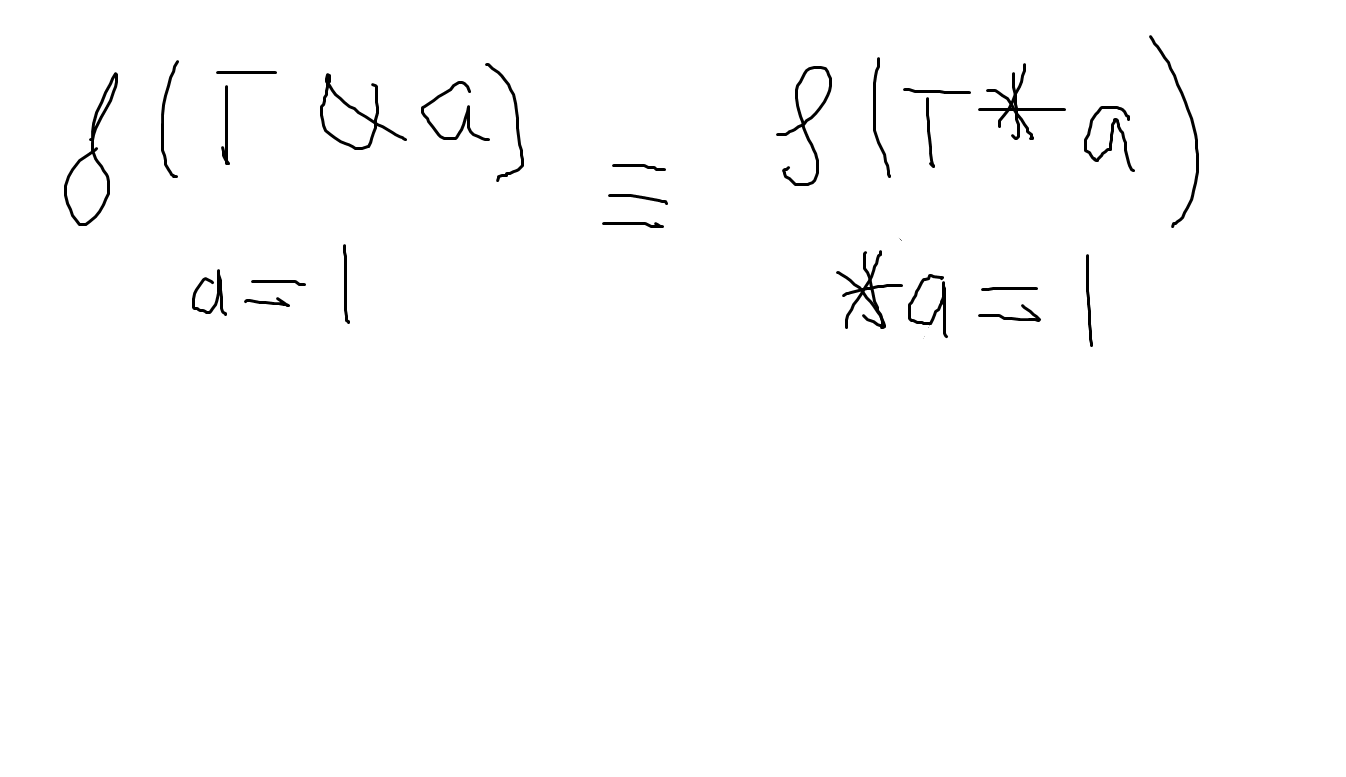 f(T & a) ≡ f(T * a)
a = 1 *a = 1